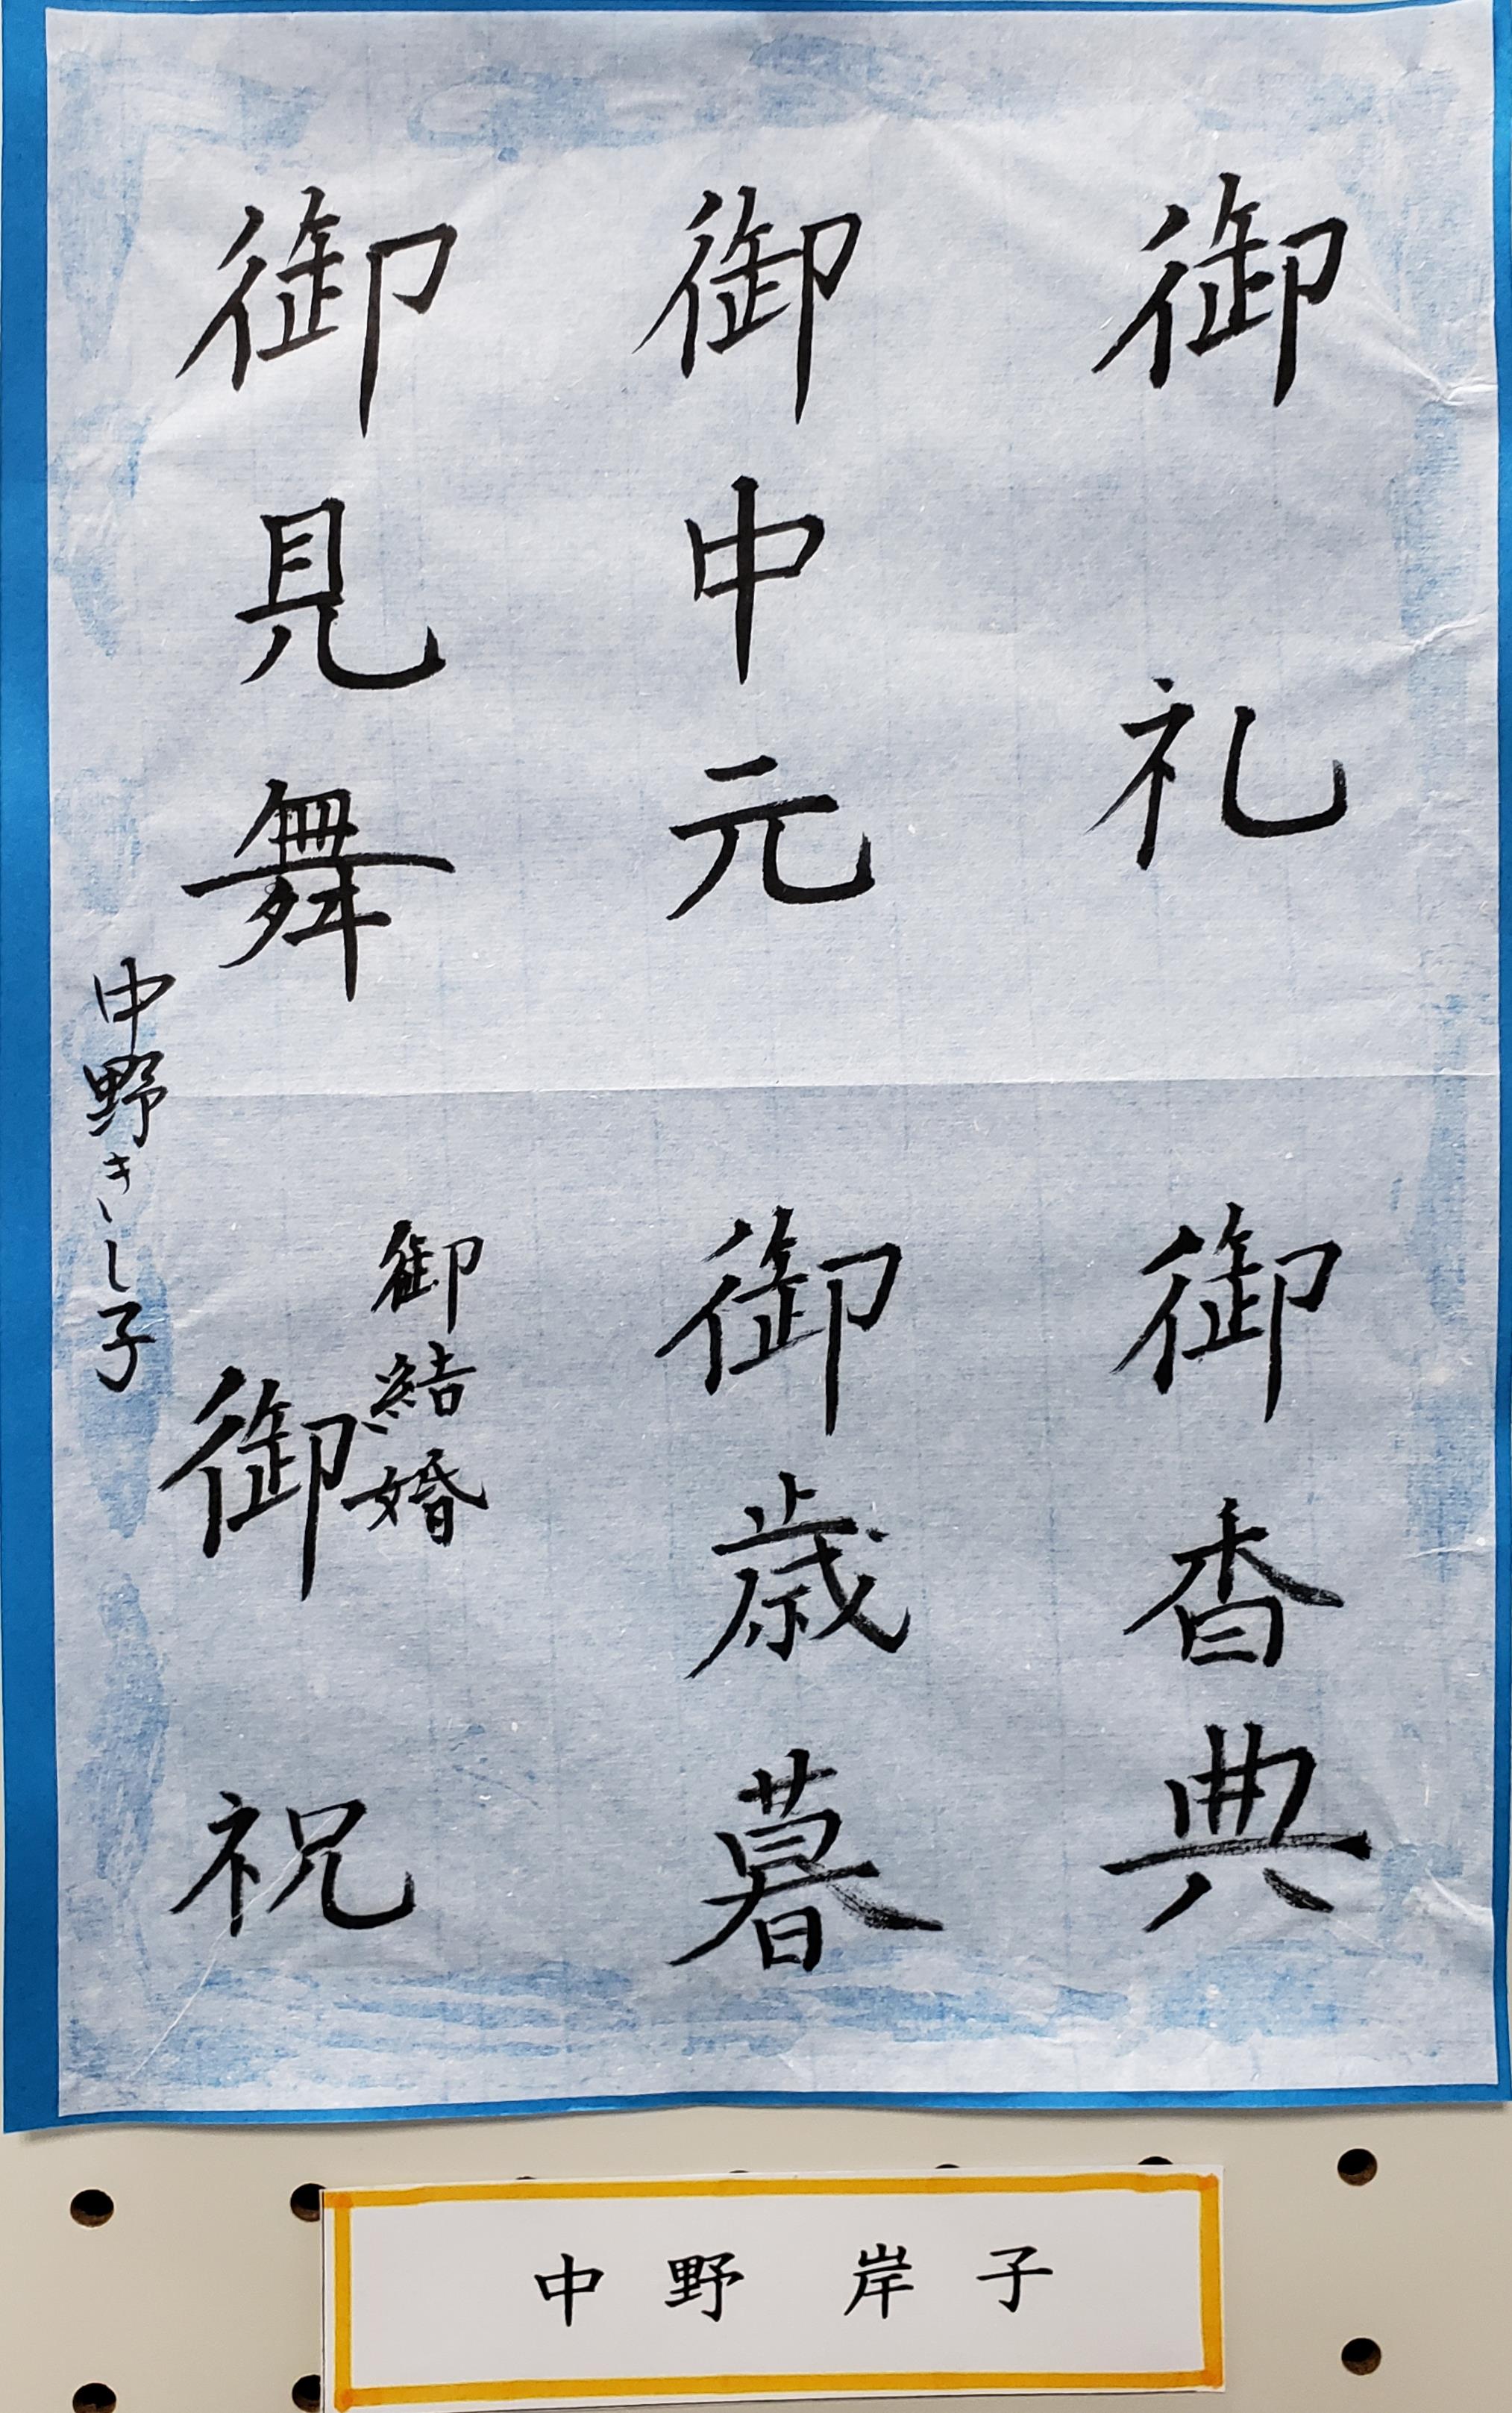 御礼
御中元
御見舞
御香典
御歳暮
御結婚
御祝
中野きし子
中野 岸子